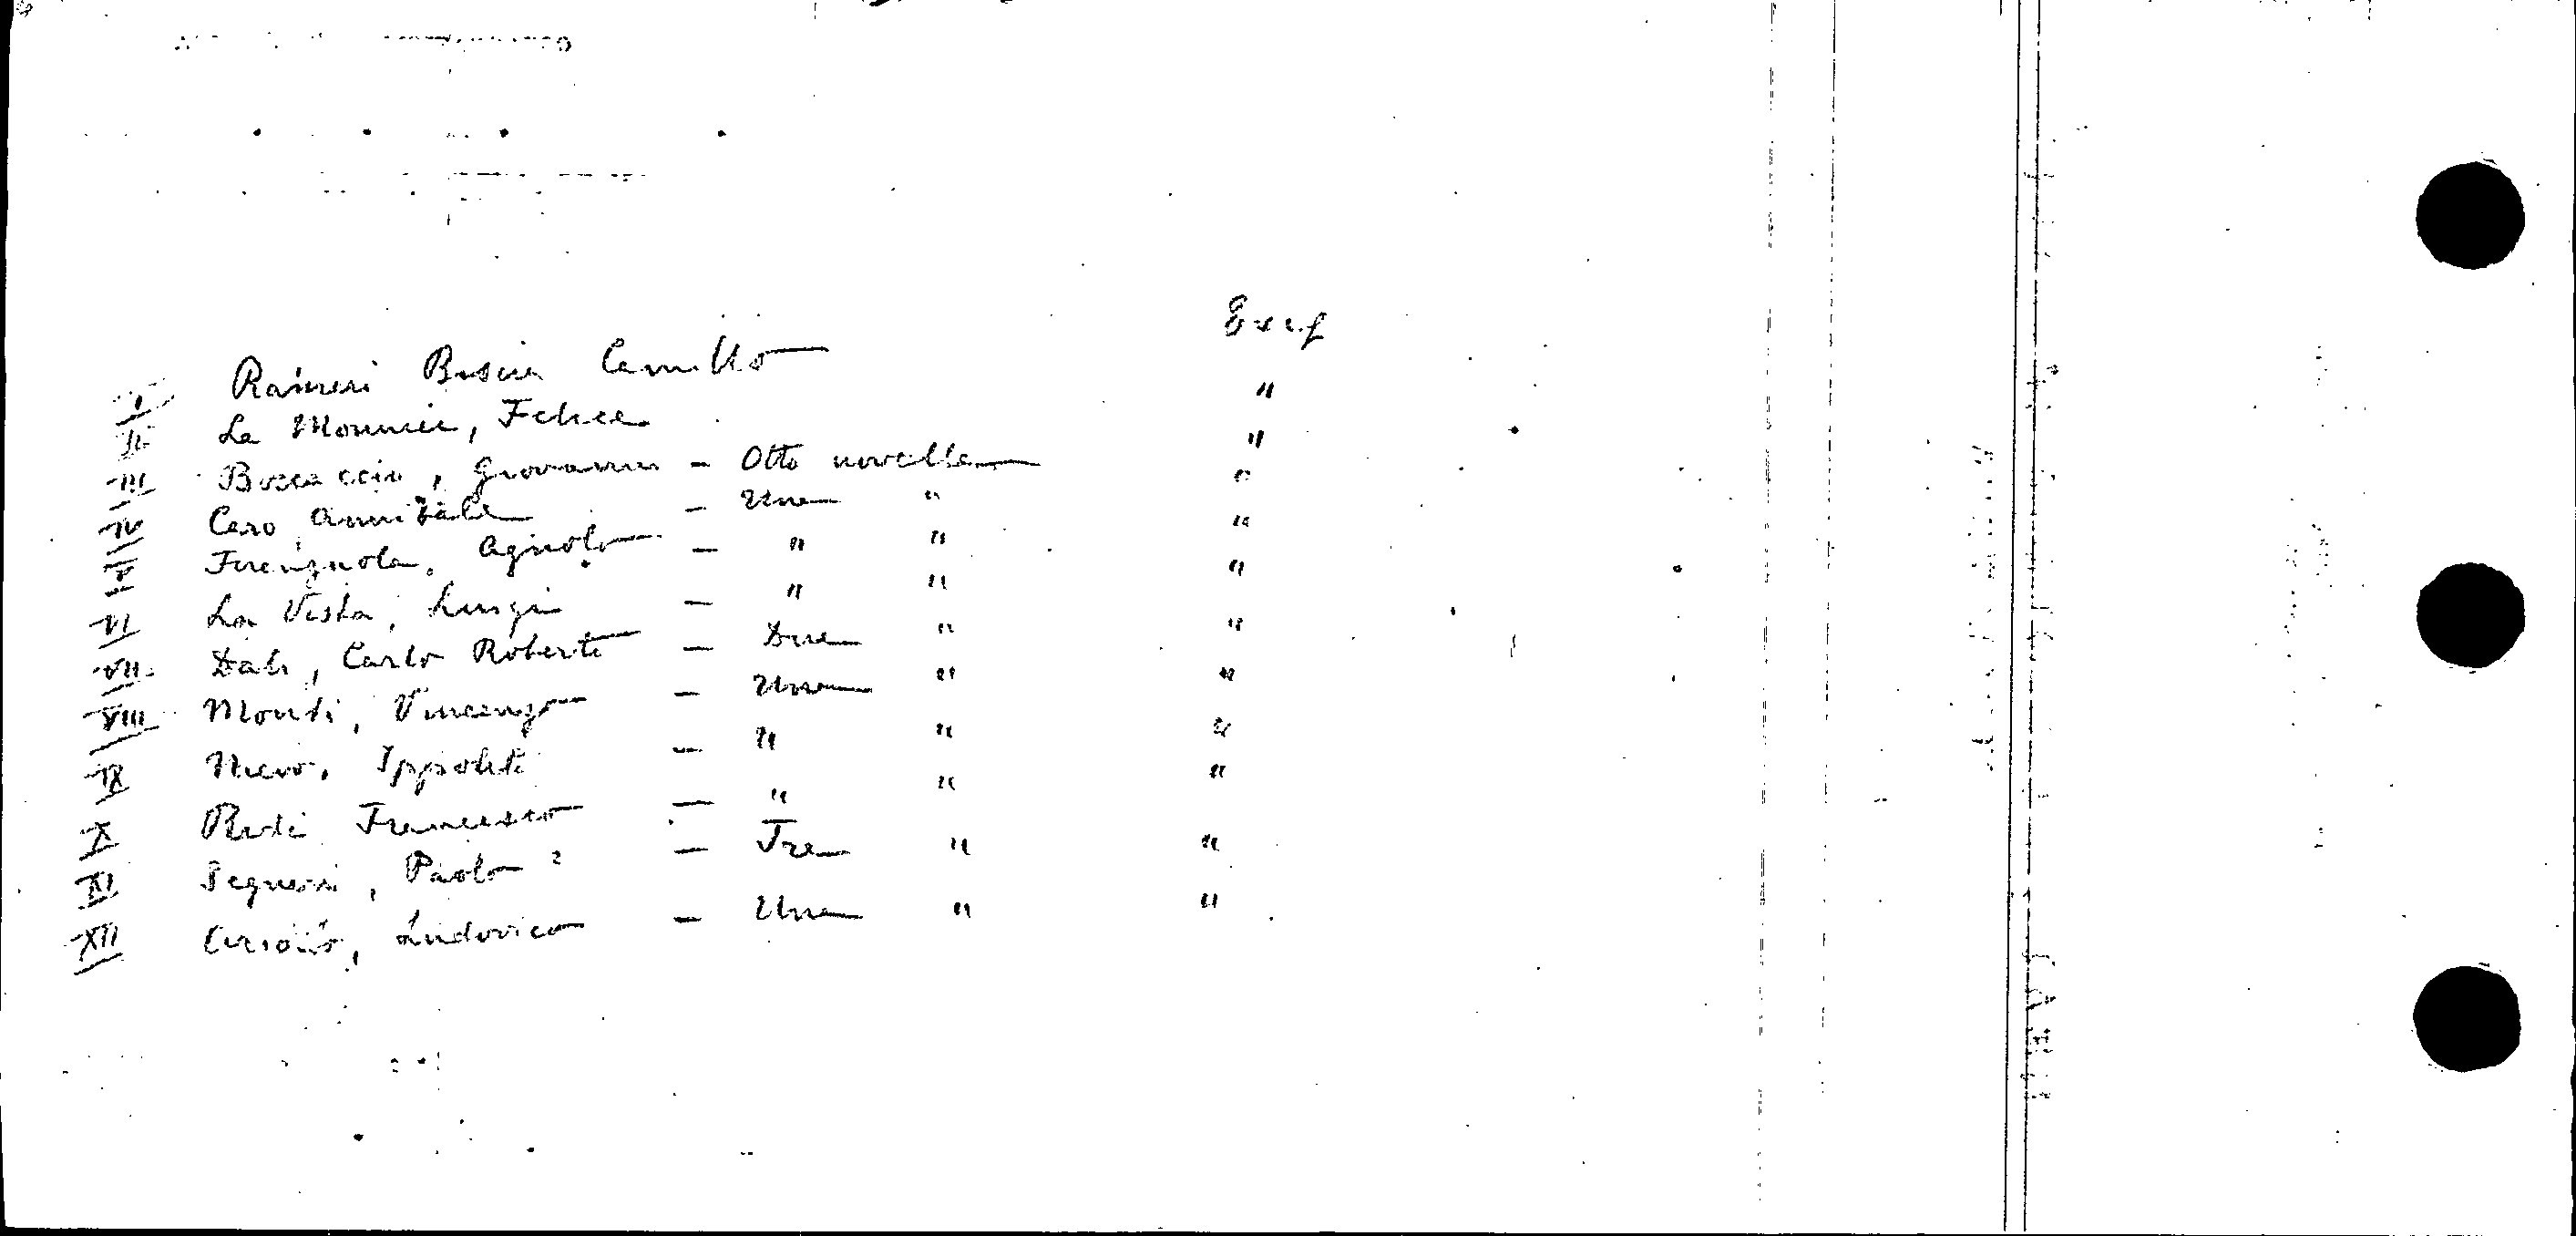 Exef
I Raineri Biscia Camillo
II La Monnier, Felice "
III Boccaccio, Giovanni - Otto novelle "
IV Caro, Annibale - Una " "
V Firenzuola, Agnolo - " " "
VI La Vista, Luigi - " " "
VII Dati, Carlo Roberto - Due " "
VIII Monti, Vincenzo - Una " "
IX Nievo, Ippolito - " " "
X Redi Francesco - " " "
XI Segneri, Paolo - Tre " "
XII Ariosto, Ludovico - Una " "